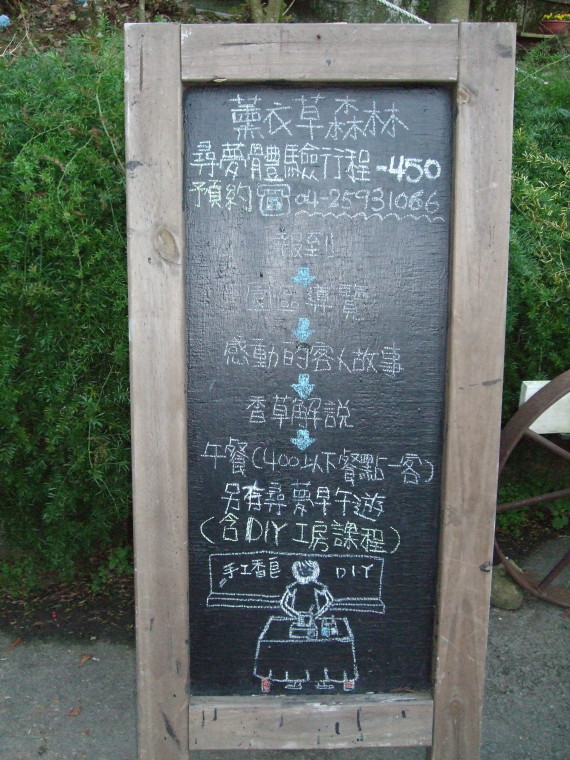 薰衣草森林
尋夢體驗行程-450
預約☎04-25931066
報到
園區導覽
感動的客人故事
香草解說
午餐(400以下餐點一客)
另有尋夢早午遊
(含DIY工房課程)
手工香皂 DIY